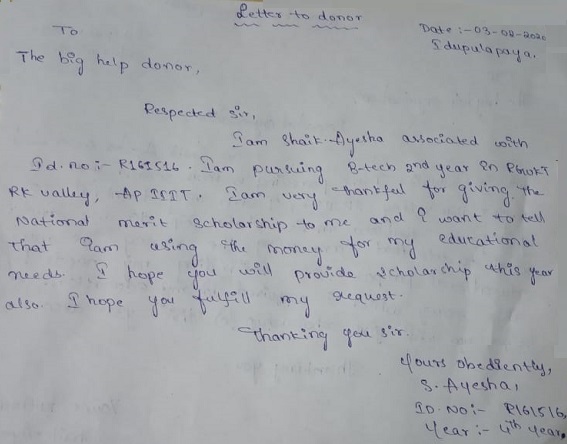 Letter to donor
Date :- 03-08-2020
Idupulapaya.
To
The big help donor,
Respected sir,
Iam Shaik. Ayesha associated with
Id. no :- R161516. Iam pursuing B-tech 2nd year in RGUKT
RK valley, AP IIIT. Iam very thankful for giving the
National merit scholarship to me and I want to tell
That Iam using the money for my educational
needs. I hope you will provide scholarship this year
also. I hope you fulfill my request.
Thanking you sir.
Yours obediently,
S. Ayesha,
ID. NO :- R161516,
Year :- 4th year.